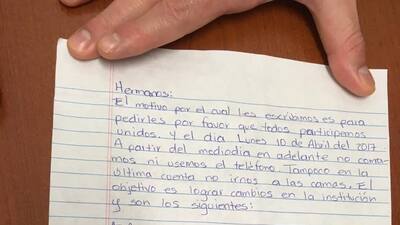 Hermanas:
El motivo por el cual les escribamos es para
pedirles por favor que todos participemos
unidos. Y el dia Lunes 10 de Abril del 2017
A partir del mediodia en adelante no coma-
mos ni usemos el teléfono Tampoco en la
última cuenta no irnos a las camas. El
objetivo es lograr cambios en la institución
y son los siguientes: